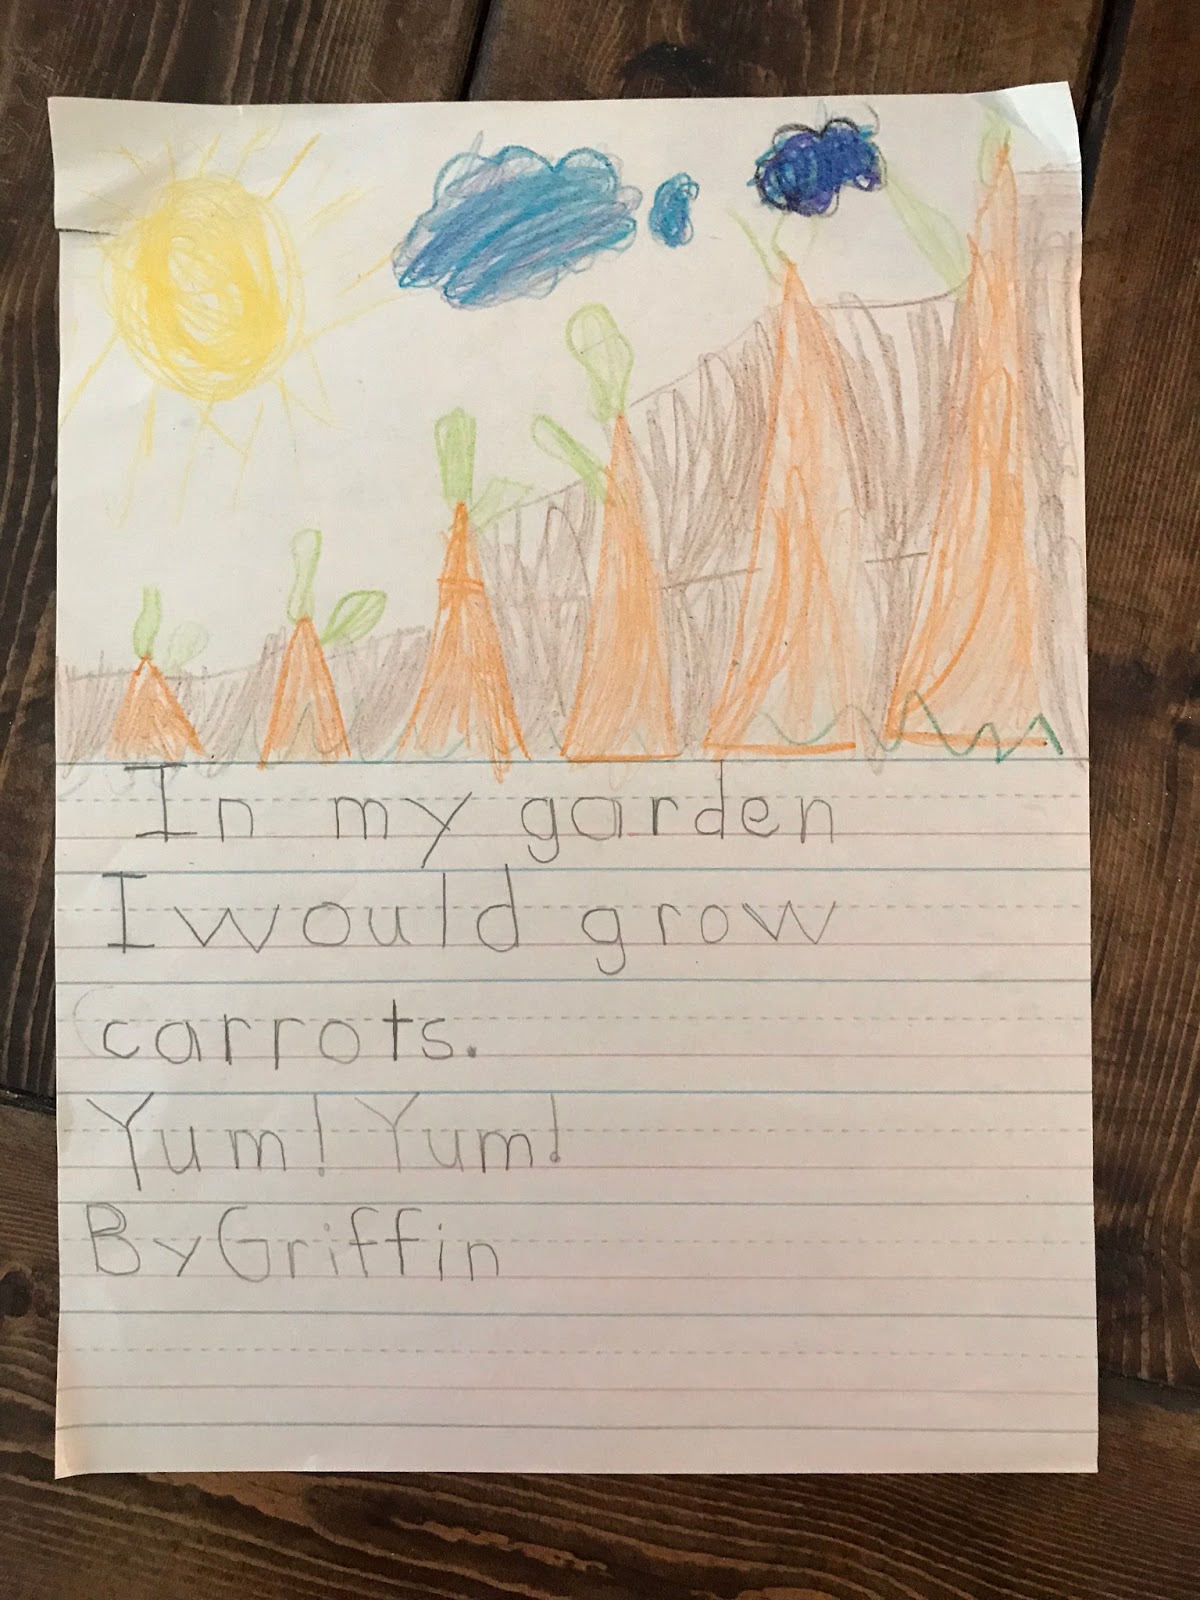 In my garden
I would grow
carrots.
Yum! Yum!
By Griffin